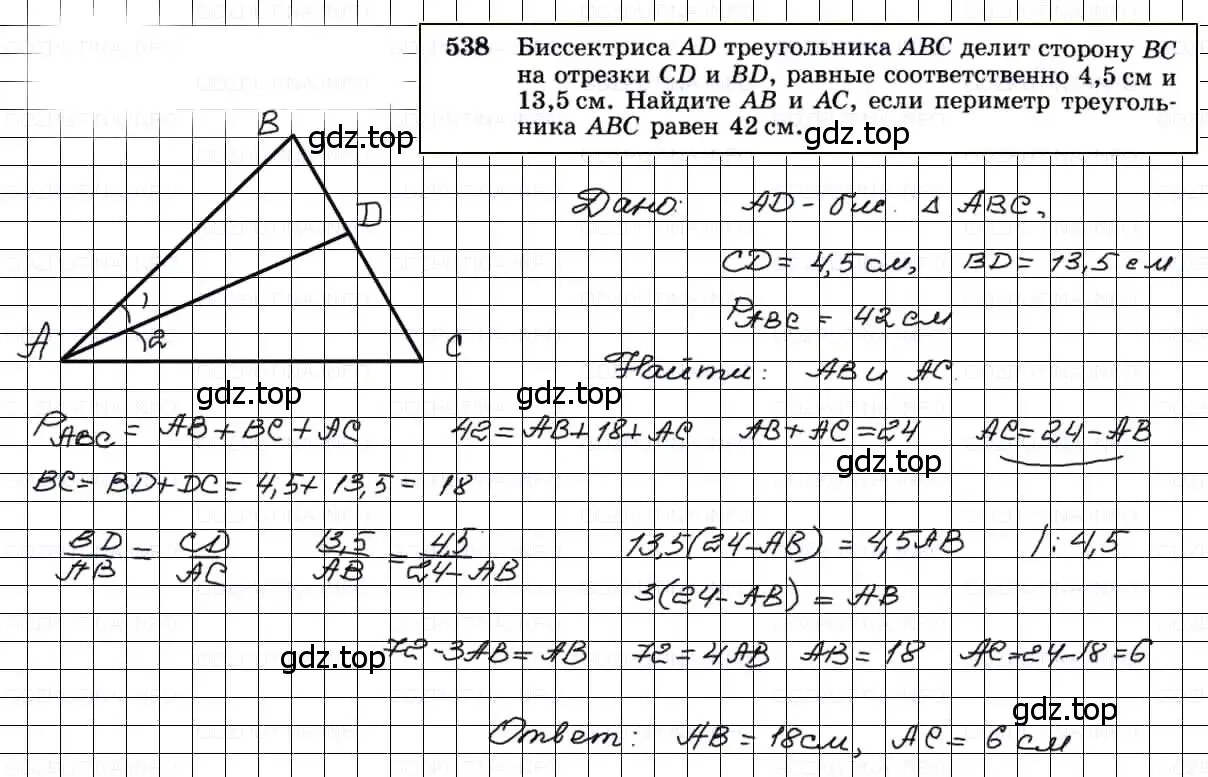 538 Биссектриса AD треугольника ABC делит сторону BC
на отрезки CD и BD, равные соответственно 4,5 см и
13,5 см. Найдите AB и AC, если периметр треуголь-
ника ABC равен 42 см.
gdz.top
B
gdz.top
D
1
2
A
C
Дано: AD - бис. Δ ABC,
CD = 4,5 см, BD = 13,5 см
P_ABC = 42 см
Найти: AB и AC.
gdz.top
gdz.top
P_ABC = AB + BC + AC 42 = AB + 18 + AC AB + AC = 24 AC = 24 - AB
gdz.top
BC = BD + DC = 4,5 + 13,5 = 18
BD/AB = CD/AC 13,5/AB = 4,5/24-AB 13,5(24-AB) = 4,5AB /:4,5
3(24-AB) = AB
72-3AB = AB 72 = 4AB AB = 18 AC = 24-18 = 6
gdz.top
gdz.top
Ответ: AB = 18 см, AC = 6 см